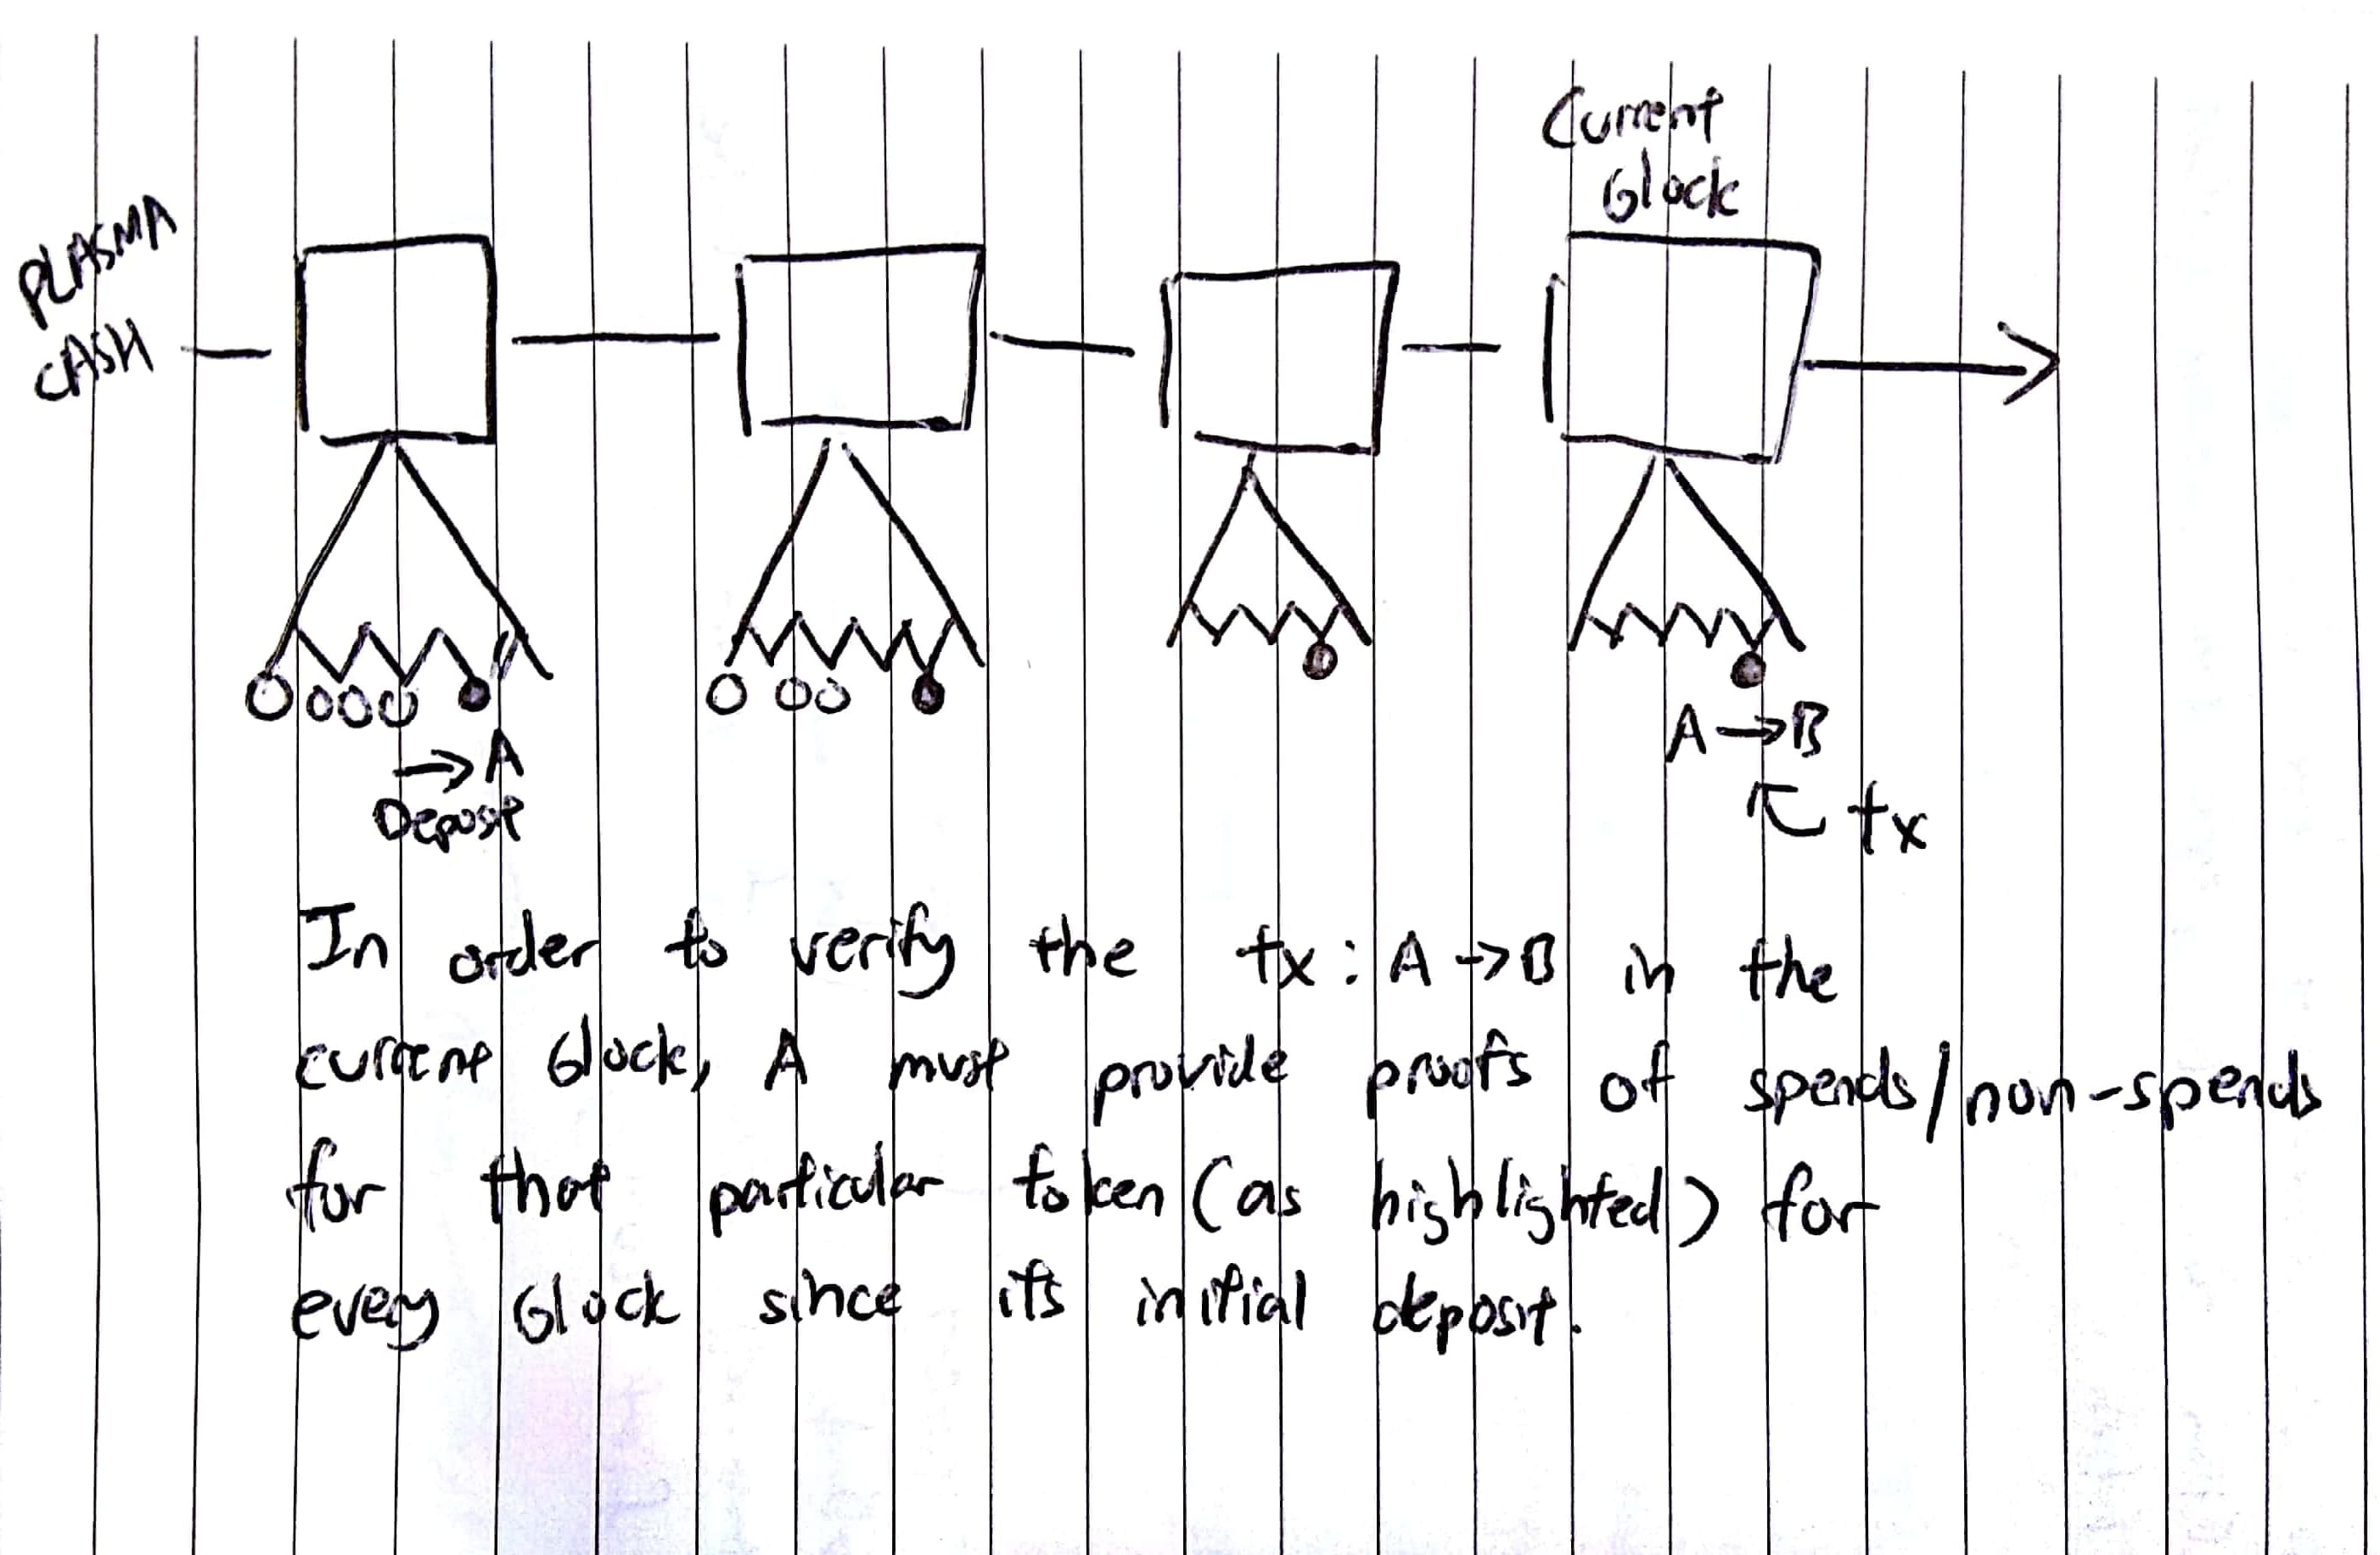 Current
block
PLASMA
CASH
→ A
Deposit
A → B
tx
In order to verify the tx: A → B in the
current block, A must provide proofs of spends/non-spends
for that particular token (as highlighted) for
every block since its initial deposit.